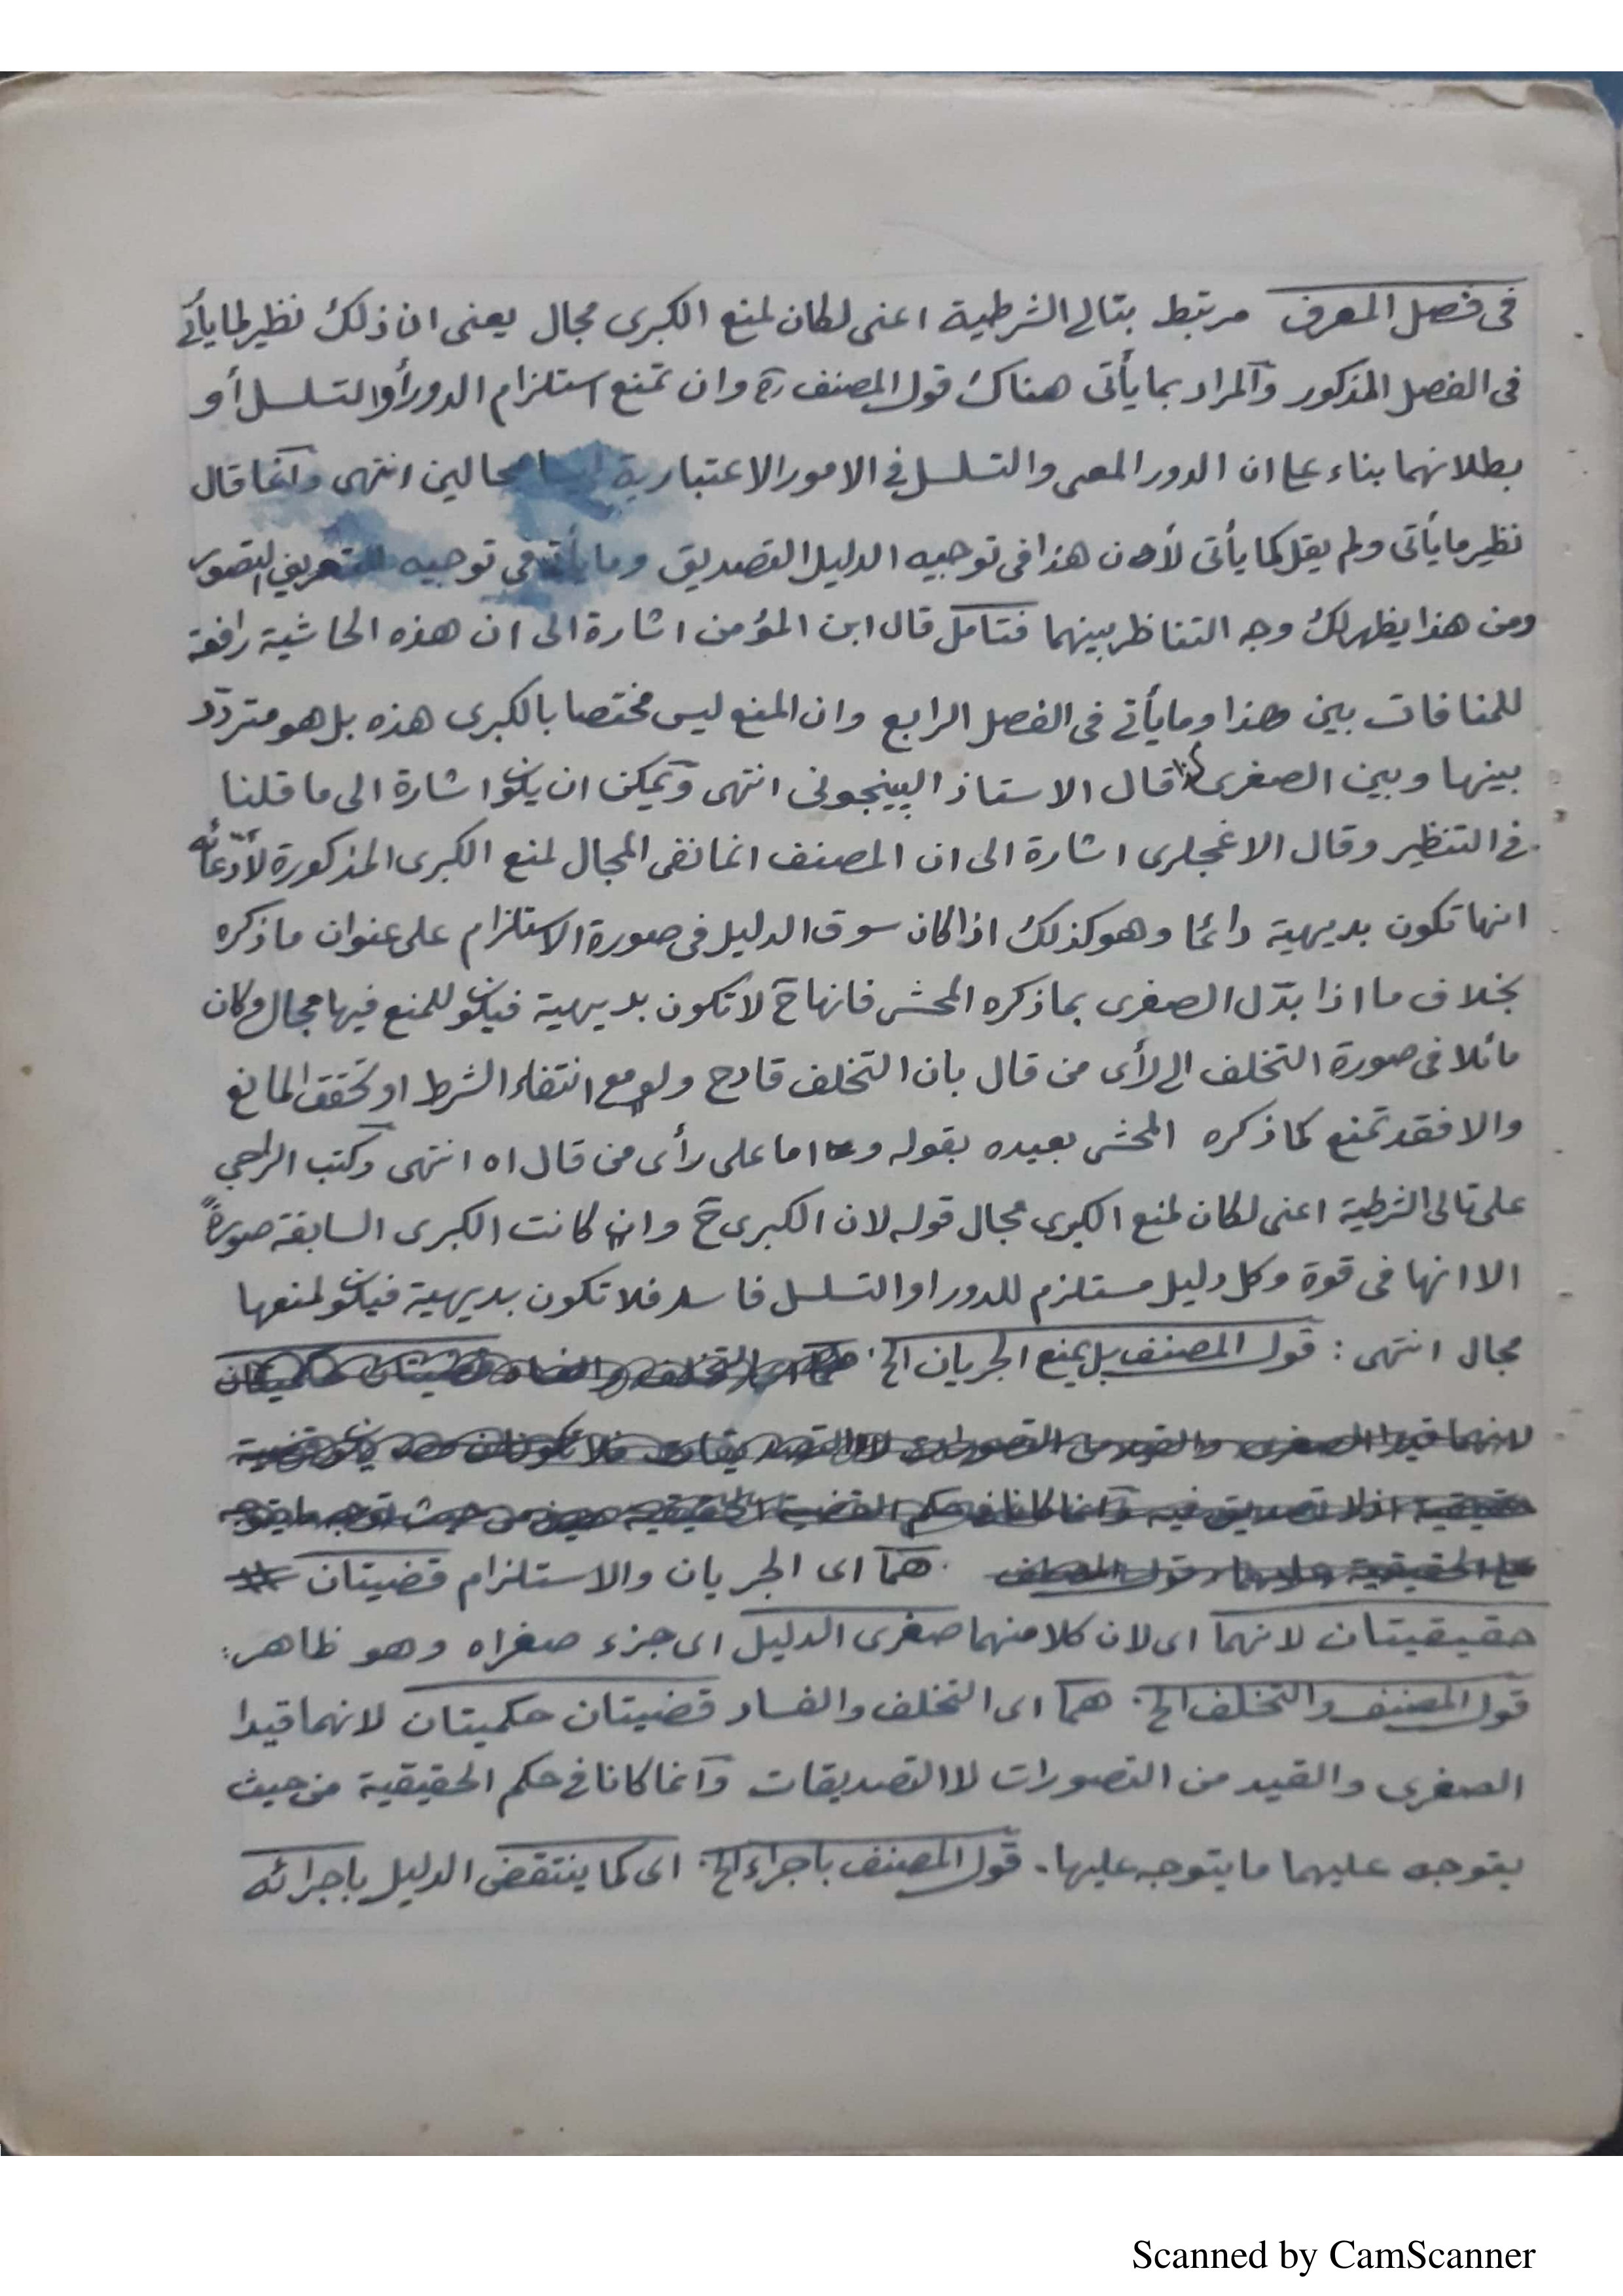 فى فصل المعرف مرتبط بتالى الشرطية اعنى لكان لمنع الكبرى مجال يعنى ان ذلك نظير لما يأتى
فى الفصل المذكور والمراد بما يأتى هناك قول المصنف ره وان تمنع استلزام الدور أو التسلسل أو
بطلانهما بناء على ان الدور المعى والتسلسل فى الامور الاعتبارية ليسا محالين انتهى وانما قال
نظير ما يأتى ولم يقل كما يأتى لأن هذا فى توجيه الدليل التصديق وما يأتى فى توجيه التعريف التصور
ومن هذا يظهر لك وجه التناظر بينهما فتامل قال ابن المؤمن اشارة الى ان هذه الحاشية رافعة
للمنافات بين هذا وما يأتى فى الفصل الرابع وان المنع ليس مختصا بالكبرى هذه بل هو متردّد
بينها وبين الصغرى كذا قال الاستاذ البينجونى انتهى ويمكن ان يكون اشارة الى ما قلنا
فى التنظير وقال الاغجلرى اشارة الى ان المصنف انما نفى المجال لمنع الكبرى المذكورة لأدّعائه
انها تكون بديهية دائما وهو كذلك اذا كان سوق الدليل فى صورة الاستلزام على عنوان ما ذكره
بخلاف ما اذا بدّل الصغرى بما ذكره المحشى فانها ح لا تكون بديهية فيكون للمنع فيها مجال وكان
مائلا فى صورة التخلف الى رأى من قال بان التخلف قادح ولو مع انتفاء الشرط او تحقق المانع
والا فقد تمنع كما ذكره المحشى بعيده بقوله واما على رأى من قال اه انتهى وكتب الرحبي
على تالى الشرطية اعنى لكان لمنع الكبرى مجال قوله لان الكبرى ح وان كانت الكبرى السابقة صورةً
الا انها فى قوة وكل دليل مستلزم للدور او التسلسل فاسد فلا تكون بديهية فيكون لمنعها
مجال انتهى : قول المصنف بل يمنع الجريان الخ.
هما اى الجريان والاستلزام قضيتان
حقيقيتان لانهما اى لان كلا منهما صغرى الدليل اى جزء صغراه وهو ظاهر:
قول المصنف والتخلف الخ. هما اى التخلف والفساد قضيتان حكميتان لانهما قيدا
الصغرى والقيد من التصورات لا التصديقات وانما كانا فى حكم الحقيقية من حيث
يتوجه عليهما ما يتوجه عليها. قول المصنف باجراء الخ. اى كما ينتقض الدليل باجرائه
Scanned by CamScanner